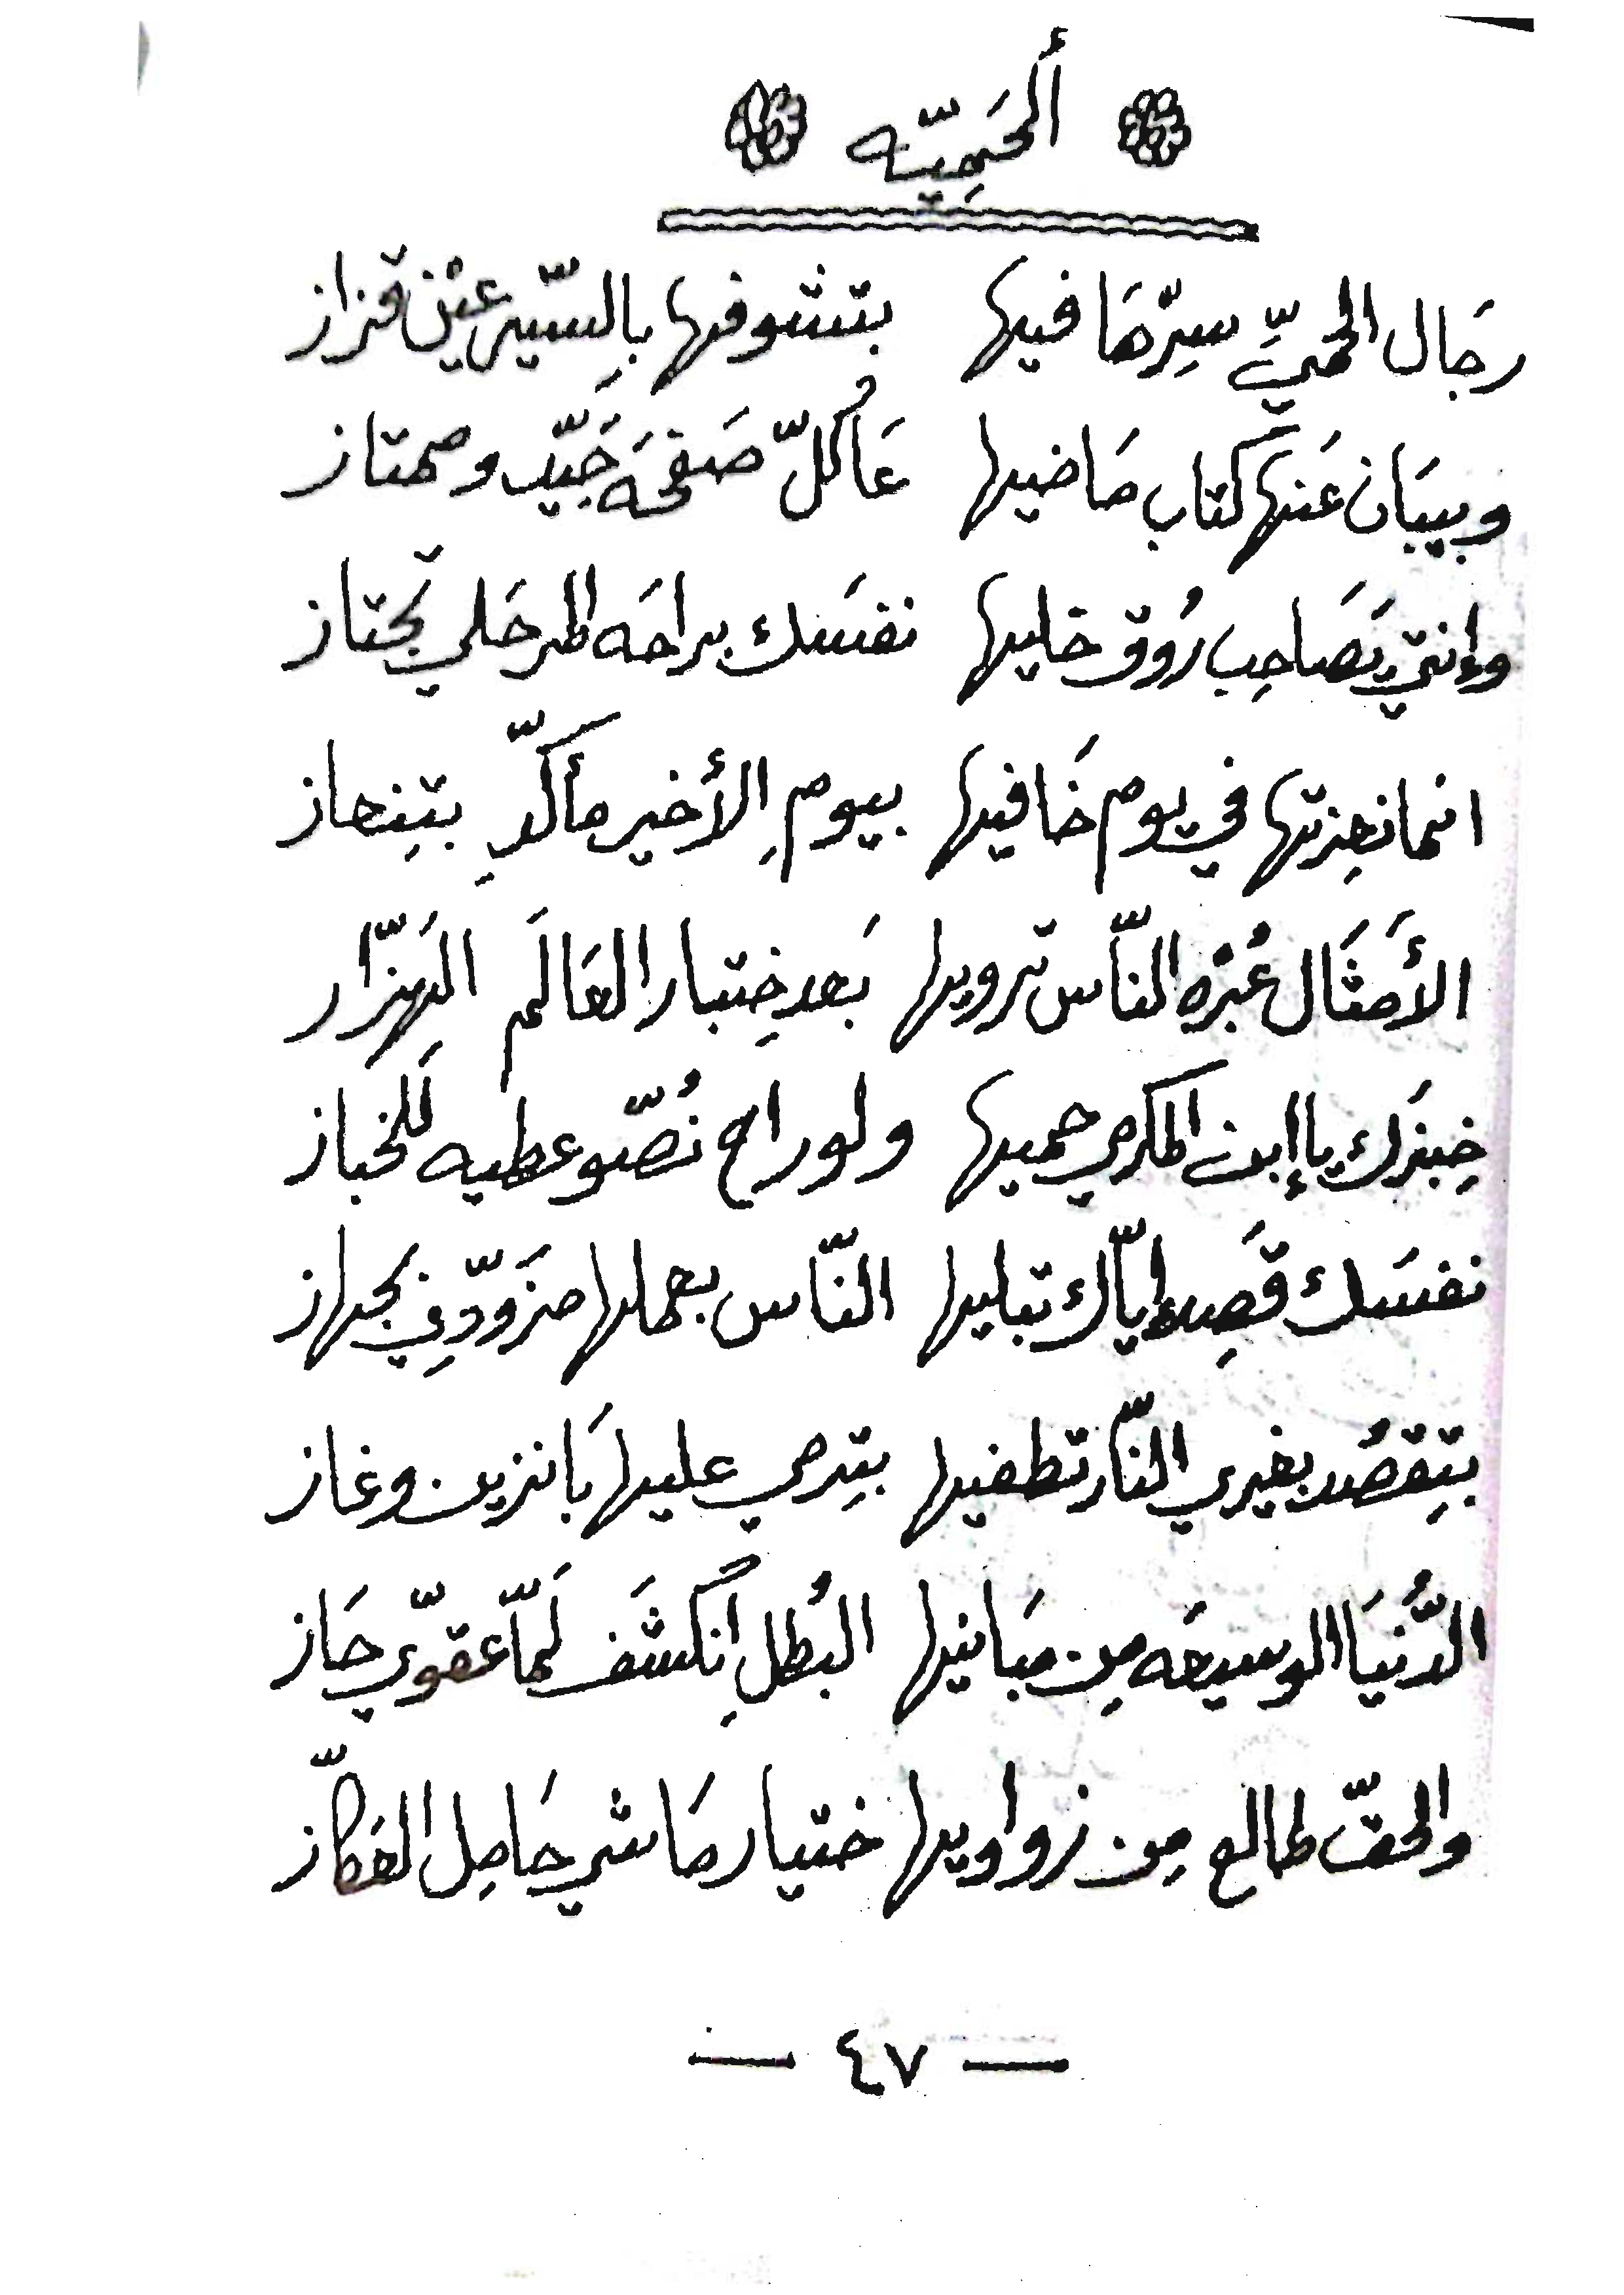 ألحَمِيّه
رجَال الحميِّي سِرّهَا فيها بتشوفها بِالسّير عيْن قزاز
وبيبَان عَنها كتاب ماضيها عَا كُلّ صَفحَه جَيّد وممتاز
وإنتي يَصَاحِب رُوق خليها نفسَك براحَه المرحَلي تجتاز
انما نهزتها في يوم خَافيها بيومِ الأخير مأكّدِ بتِنهاز
الأَمثَال عُبْرْه النّاس ترويها بَعد خِتبار العَالَم الهِزّار
خِبزَك يا إبن المكرمي حميها ولو راح نُصّو عطيه لَلخباز
نفسَك قَصِد إيّاك تبليها النّاس بعملها مزَوّدِي بجهاز
بتِقصُد بغيري النّار تطفيها بتِرمي عليها بَانزين وغاز
الدُّنيَا الوسيعَه مِن مبَانيها البُطل اِنكشَف لمّا عقوّي حَاز
والحقّ طالع مِن زواويها ختيار مَاشي حَامِل العَكّاز
— ٤٧ —